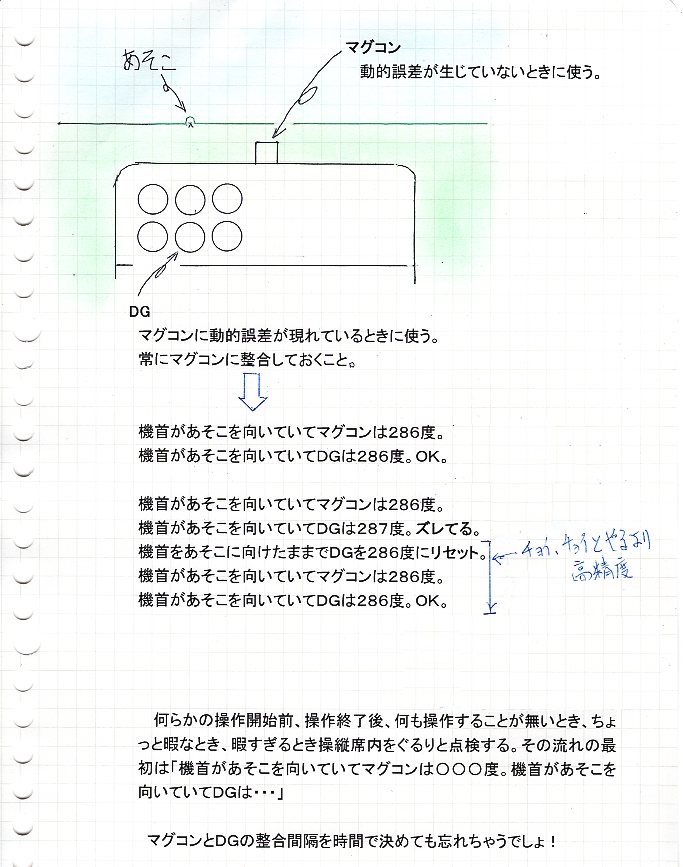 あそこ
マグコン
動的誤差が生じていないときに使う。
DG
マグコンに動的誤差が現れているときに使う。
常にマグコンに整合しておくこと。
機首があそこを向いていてマグコンは286度。
機首があそこを向いていてDGは286度。OK。
機首があそこを向いていてマグコンは286度。
機首があそこを向いていてDGは287度。ズレてる。
機首をあそこに向けたままでDGを286度にリセット。
チョイ、チョイとやるより
高精度
機首があそこを向いていてマグコンは286度。
機首があそこを向いていてDGは286度。OK。
何らかの操作開始前、操作終了後、何も操作することが無いとき、ちょ
っと暇なとき、暇すぎるとき操縦席内をぐるりと点検する。その流れの最
初は「機首があそこを向いていてマグコンは〇〇〇度。機首があそこを
向いていてDGは・・・」
マグコンとDGの整合間隔を時間で決めても忘れちゃうでしょ！